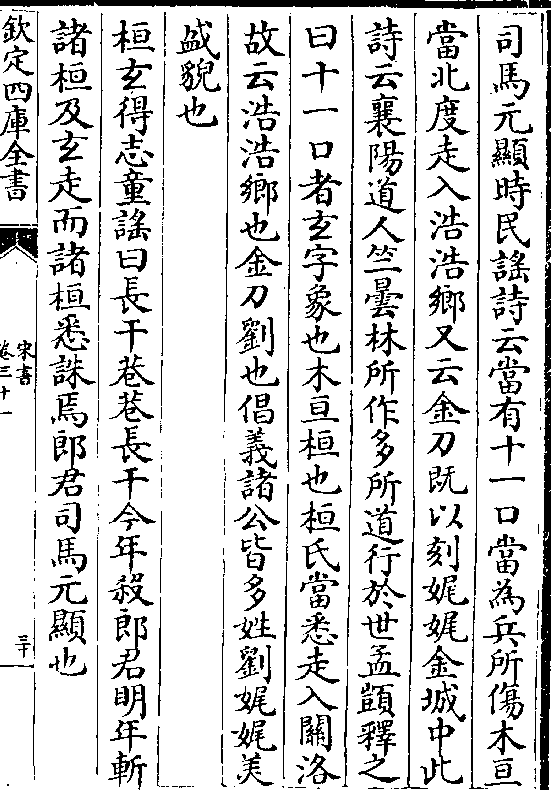 司馬元顯時民謡詩云當有十一口當為兵所傷木亘
當北度走入浩浩鄉又云金刀既以刻娓娓金城中此
詩云襄陽道人竺曇林所作多所道行於世孟顗釋之
曰十一口者玄字象也木亘桓也桓氏當悉走入關洛
故云浩浩鄉也金刀劉也倡義諸公皆多姓劉娓娓美
盛貌也
桓玄得志童謡曰長干巷巷長干今年殺郎君明年斬
諸桓及玄走而諸桓悉誅焉郎君司馬元顯也
欽定四庫全書
宋書
卷三十一
三十